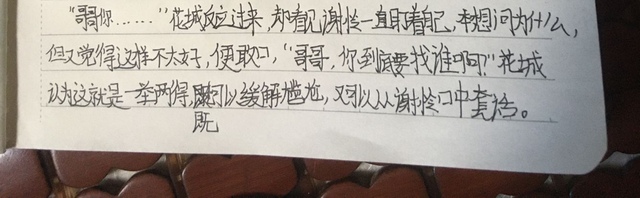 “哥哥你……”花城反应过来,却看见谢怜一直盯着自己,本想问为什么,
但又觉得这样不太好,便改口,“哥哥,你到底要找谁啊?”花城
认为这就是一举两得,可以缓解尴尬,又可以从谢怜口中套话。
既